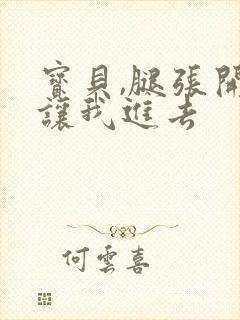 寶貝,腿張開
讓我進去
何雲喜